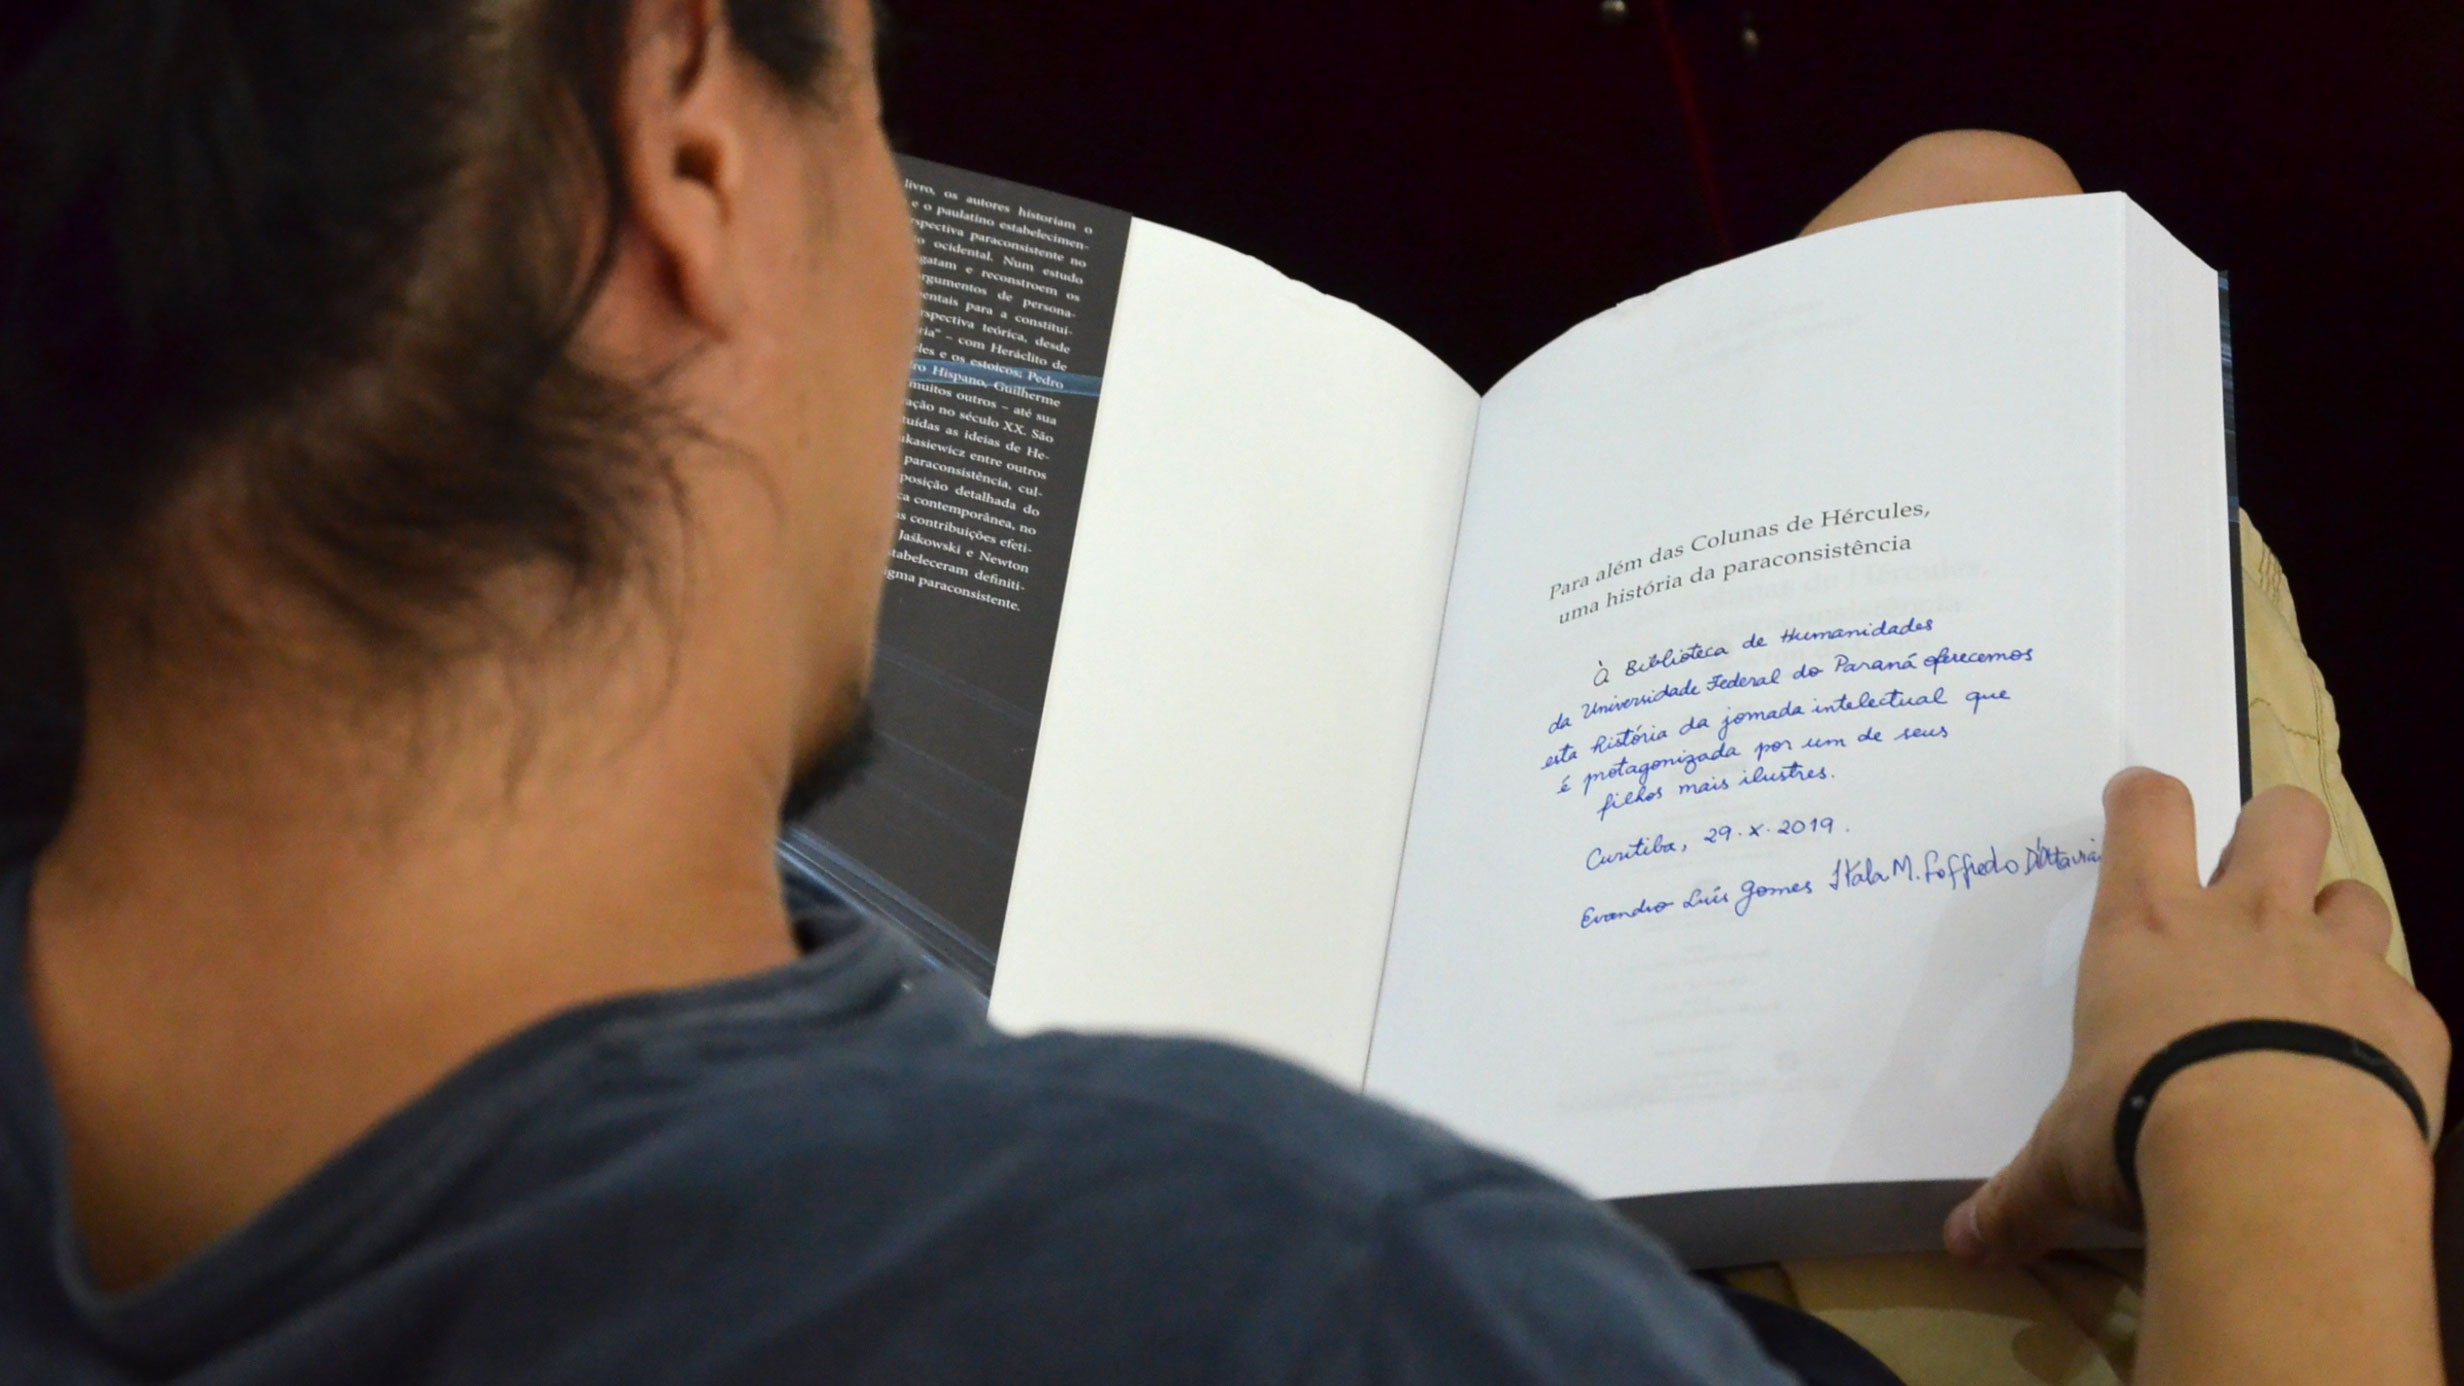 livro, os autores historiam o
e o paulatino estabelecimen-
spectiva paraconsistente no
ocidental. Num estudo
gatam e reconstroem os
rgumentos de persona-
entais para a constitui-
spectiva teórica, desde
ria" – com Heráclito de
les e os estoicos; Pedro
ro Hispano, Guilherme
muitos outros – até sua
ação no século XX. São
uídas as ideias de He-
ukasiewicz entre outros
paraconsistência, cul-
posição detalhada do
ca contemporânea, no
s contribuições efeti-
Jaśkowski e Newton
tabeleceram definiti-
igma paraconsistente.
Para além das Colunas de Hércules,
uma história da paraconsistência
À Biblioteca de Humanidades
da Universidade Federal do Paraná oferecemos
esta história da jornada intelectual que
é protagonizada por um de seus
filhos mais ilustres.
Curitiba, 29.X.2019.
Evandro Luís Gomes Itala M. Loffredo D'Ottavia